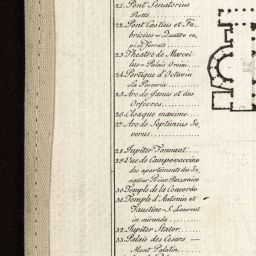 21. Pont Senatorius
Rotto
22. Pont Cestius et Fa-
bricius = Quattro ca-
pi et Ferrats
23. Théatre de Marcel-
lus = Palais Orsini
24. Portique d'Octavia
La Pescria
25. Arc de Janus et des
Orfévres
26. Cloaque maxime
27. Arc de Septimius Se-
verus
28. Jupiter Tonnant
29. Vue de Campo vaccino
des apartements du Se-
nateur Prince Rezzonico
30. Temple de la Concorde
31. Temple d'Antonin et
Faustine = S. Laurent
in miranda
32. Jupiter Stator
33. Palais des Cesars =
Mont Palatin